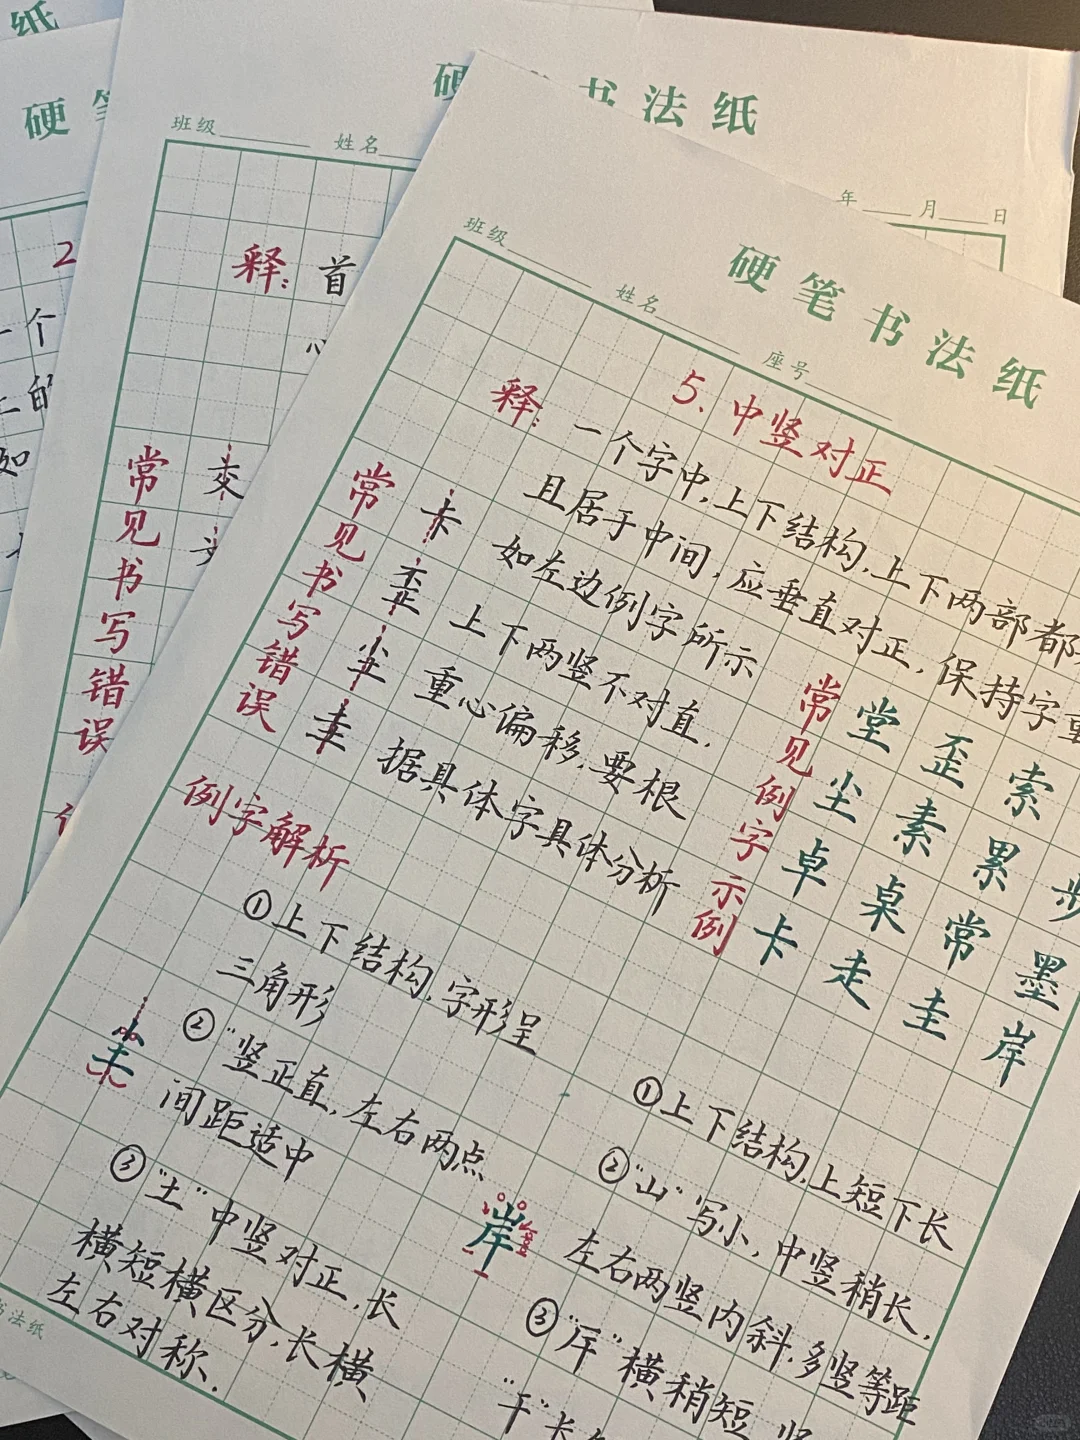 纸
硬
硬 书法纸
班级 姓名
年 月 日
2
一个
如
释: 首
心
常见书写错误
硬笔书法纸
班级 姓名 座号
5、中竖对正
释: 一个字中,上下结构,上下两部都
且居于中间,应垂直对正,保持字重
常见书写错误
卡 如左边例字所示
歪 上下两竖不对直,
尘 重心偏移,要根
圭 据具体字具体分析
常见例字示例
堂 歪 索
尘 素 累 步
卓 桌 常 墨
卡 走 圭 岸
例字解析
①上下结构,字形呈
三角形
②"竖正直,左右两点
间距适中
③"土"中竖对正,长
横短横区分,长横
左右对称.
尘
岸
①上下结构,上短下长
②"山"写小,中竖稍长,
左右两竖内斜,多竖等距
③"厈"横稍短,竖
"干"长
书法纸